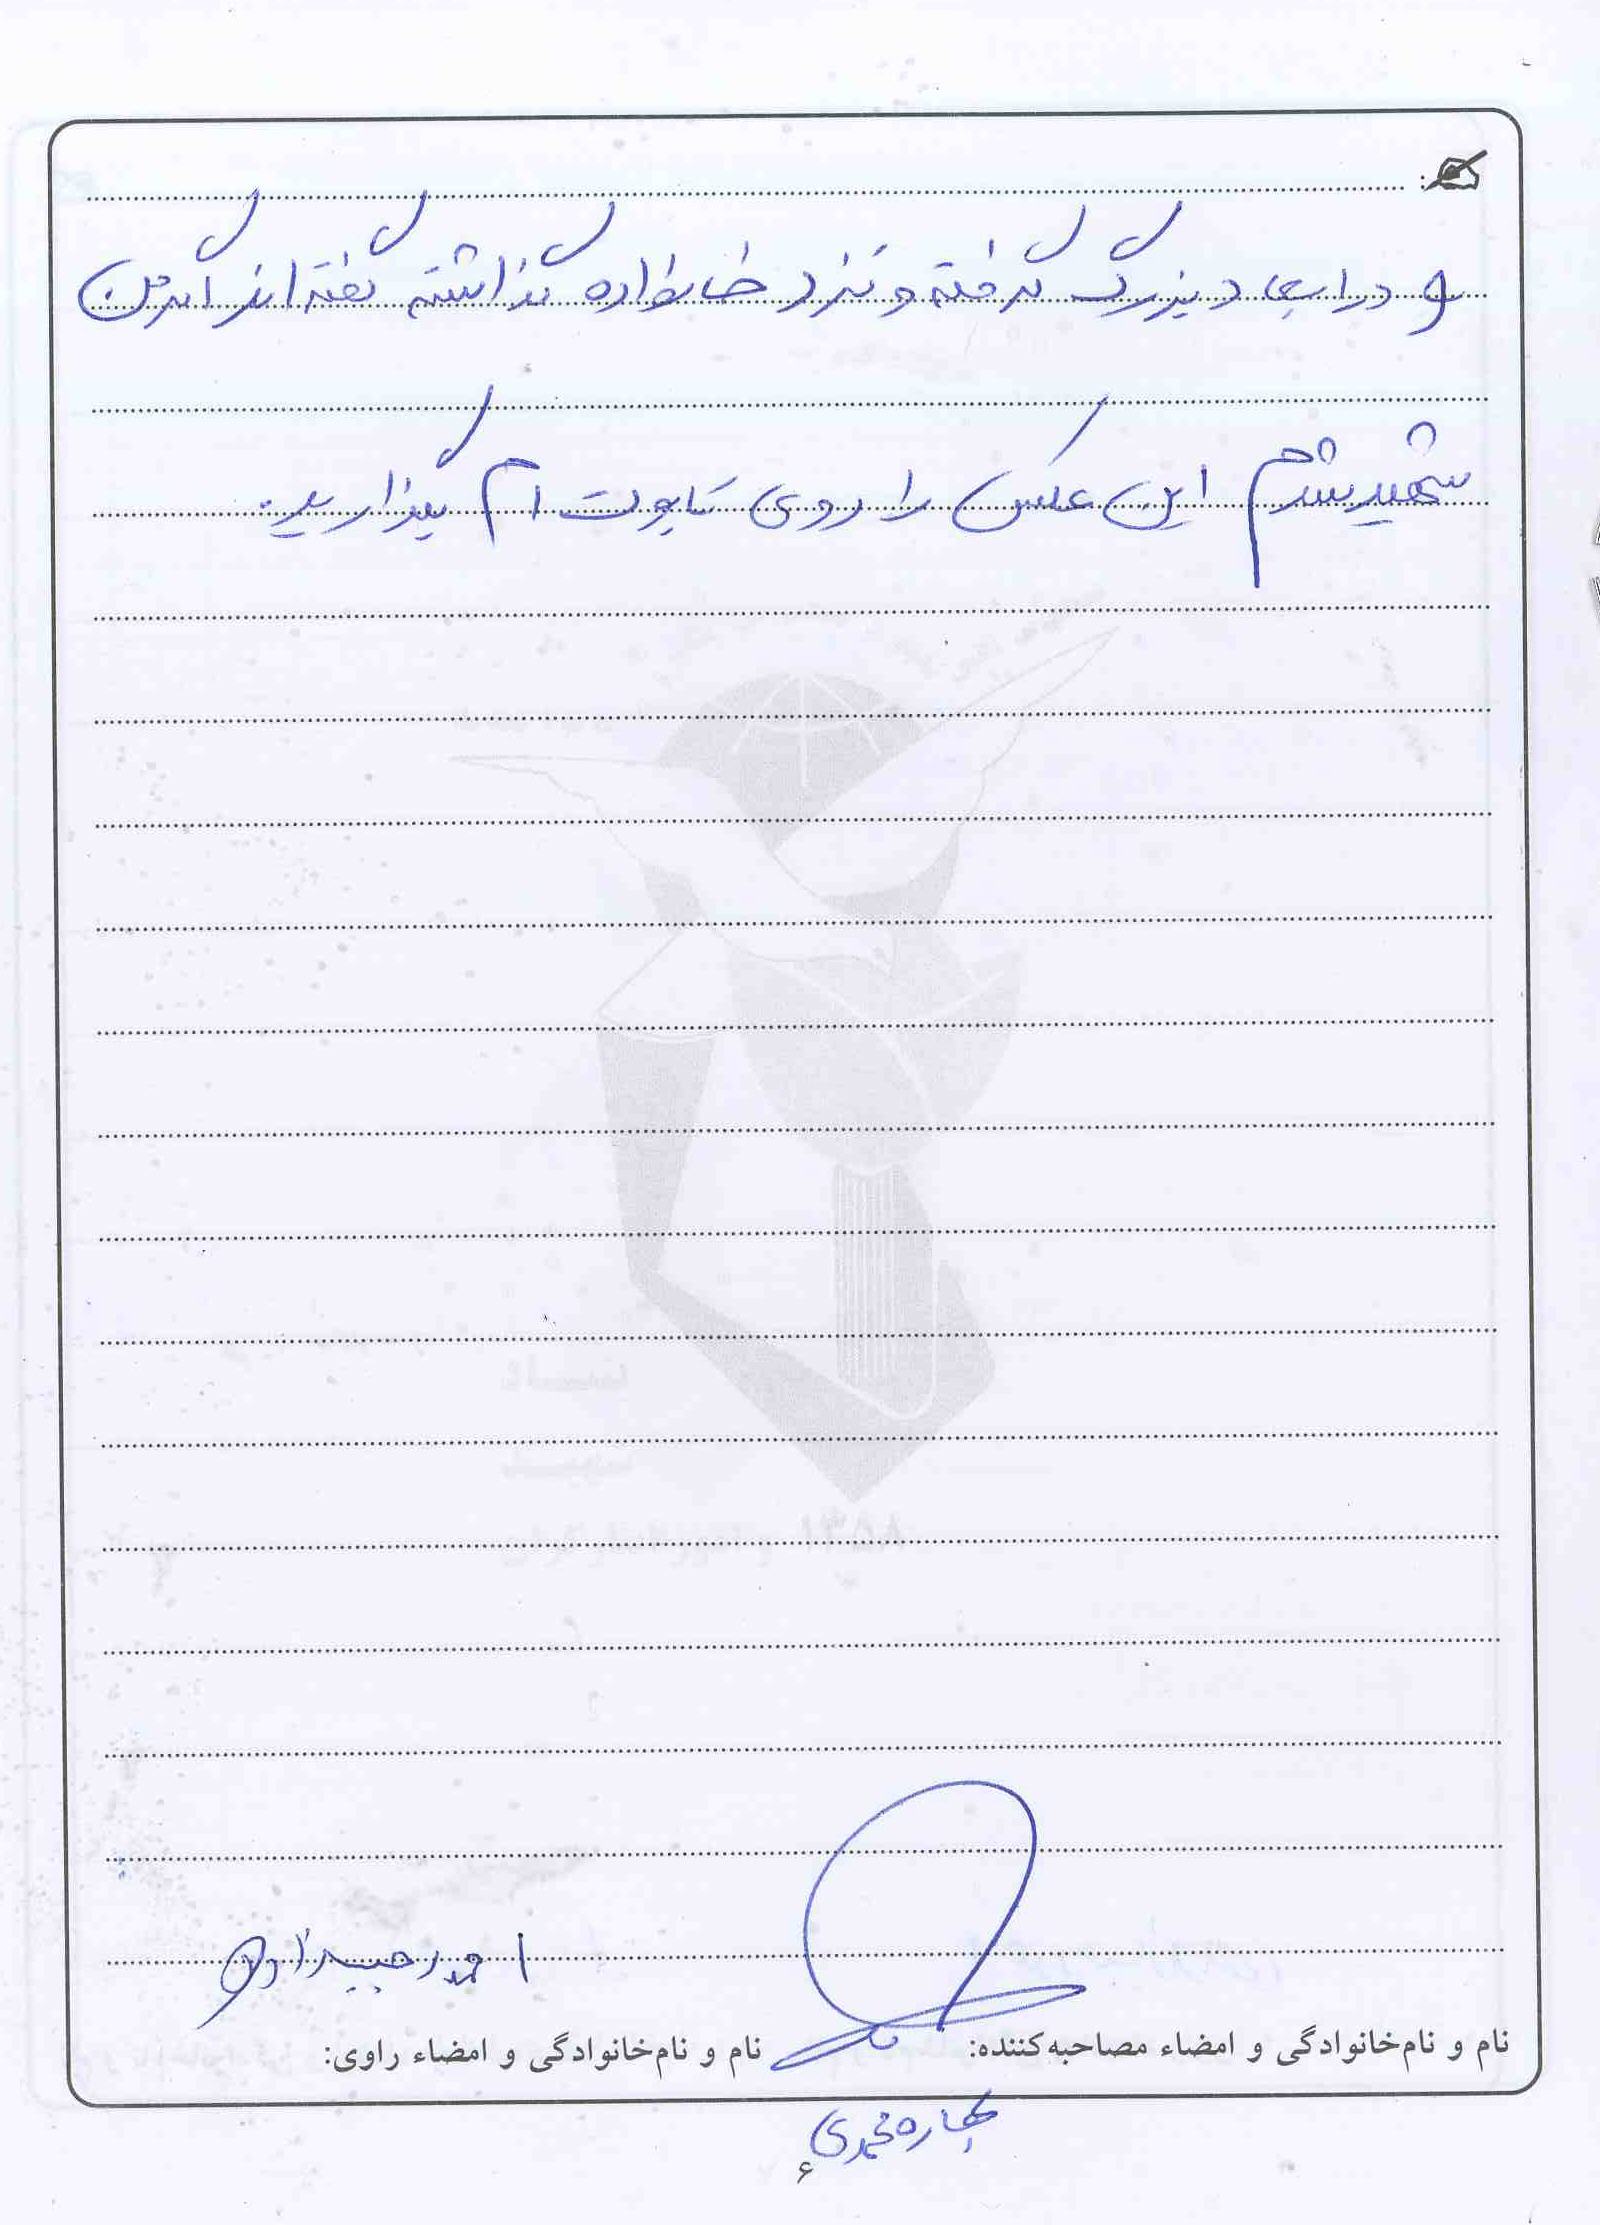 و در ابعاد بزرگ گرفته و نزد خانواده گذاشته گفته اند اگر من
شهید شدم این عکس را روی تابوت ام بگذارید.
احمد حبیب زاده
نام و نام‌خانوادگی و امضاء مصاحبه‌کننده:
نام و نام‌خانوادگی و امضاء راوی:
بهاره محمدی
۶